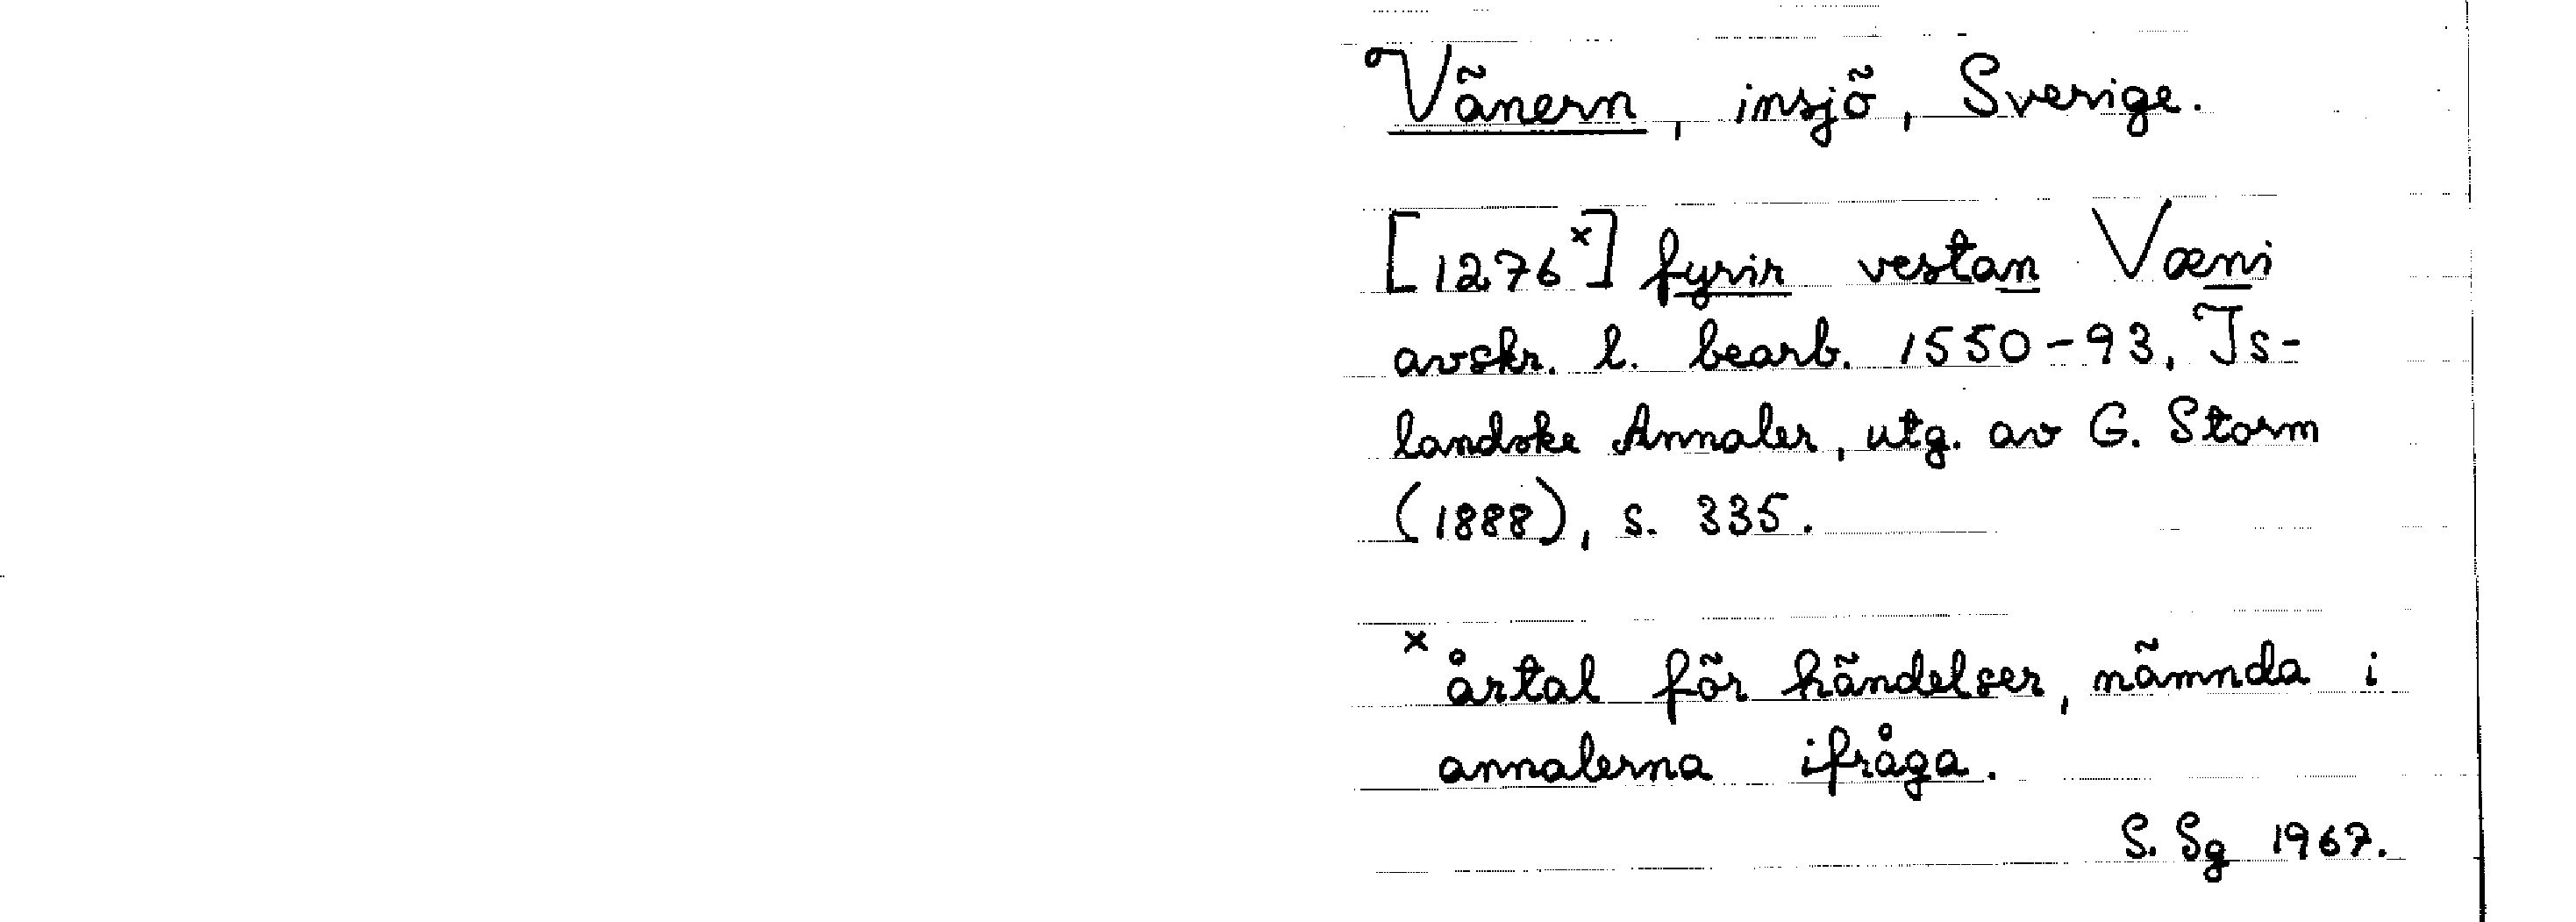 Vänern, insjö, Sverige.
[1276ˣ] fyrir vestan Væni
avskr. l. bearb. 1550-93, Is-
landske Annaler, utg. av G. Storm
(1888), s. 335.
ˣ årtal för händelser, nämnda i
annalerna ifråga.
S. Sg 1967.